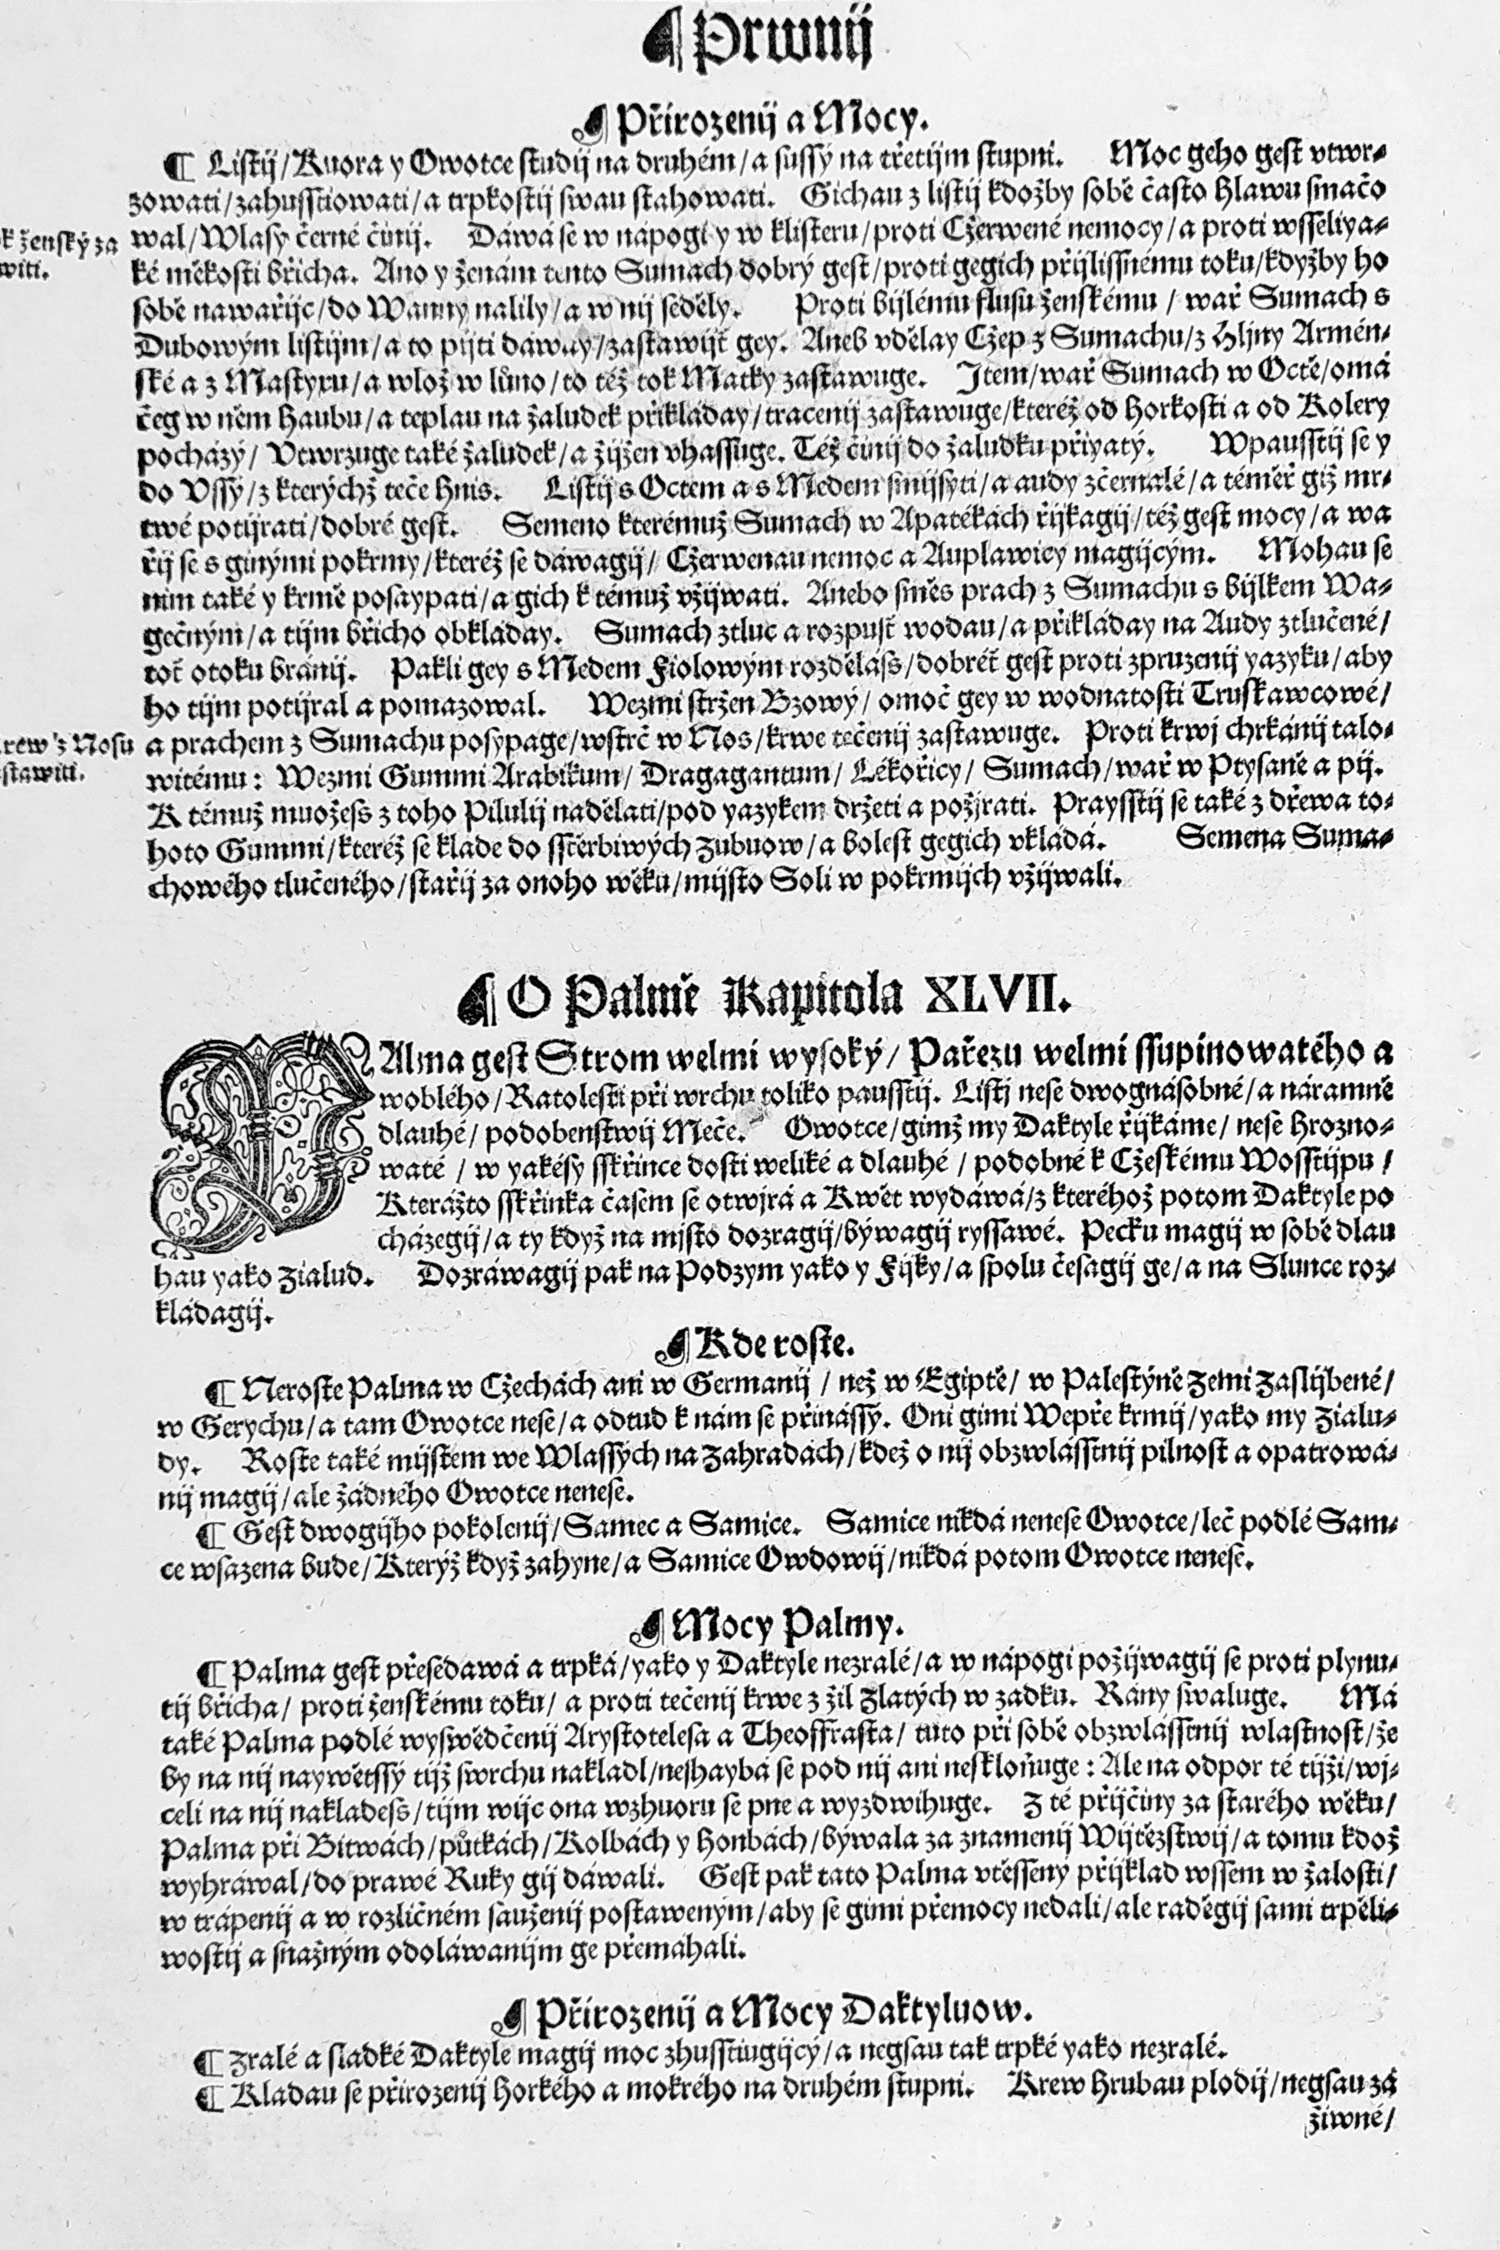 Prwnij
Přirozenij a Mocy.
¶ Listij / Kuora y Owotce studij na druhém / a sussý na třetijm stupni. Moc geho gest vtwr-
zowati / zahussťiowati / a trpkostij swau stahowati. Gichau z listij kdožby sobě často Hlawu smačo
wal / Wlasy černé činij. Dáwá se w nápogi y w klisteru / proti Cžerwené nemocy / a proti wsseliya-
k ženský za
ké měkosti břicha. Ano y ženám tento Sumach dobrý gest / proti gegich přijlissnému toku / kdyžby ho
witi.
sobě nawařijc / do Wanny nalily / a w nij seděly. Proti bijlému flusu ženskému / wař Sumach s
Dubowým listijm / a to pijti dáway / zastawijť gey. Aneb vdělay Cžep z Sumachu / z Hljny Armén-
ské a z Mastyxu / a wlož w lůno / to též tok Matky zastawuge. Item / wař Sumach w Octě / omá
čeg w něm Haubu / a teplau na žaludek přikláday / tracenij zastawuge / kteréž od Horkosti a od Kolery
pocházý / Vtwrzuge také žaludek / a žijžen vhassuge. Též činij do žaludku přiyatý. Wpausstij se y
do Vssý / z kterýchž teče Hnis. Listij s Octem a s Medem smijsyti / a audy zčernalé / a téměř giž mr-
twé potijrati / dobré gest. Semeno kterémuž Sumach w Apatékách řijkagij / též gest mocy / a wa
řij se s ginými pokrmy / kteréž se dáwagij / Cžerwenau nemoc a Auplawicy magijcým. Mohau se
nim také y krmě posaypati / a gich k témuž vžijwati. Anebo směs prach z Sumachu s bijlkem Wa-
gečným / a tijm břicho obkláday. Sumach ztluc a rozpusť wodau / a přikláday na Audy ztlučené /
toť otoku bránij. Pakli gey s Medem Fiolowým rozděláss / dobréť gest proti zpruzenij yazyku / aby
ho tijm potijral a pomazowal. Wezmi stržen Bzowý / omoč gey w wodnatosti Truskawcowé /
rew z Nosu
a prachem z Sumachu posypage / wstrč w Nos / krwe tečenij zastawuge. Proti krwj chrkánij talo-
stawiti.
witému: Wezmi Gummi Arabikum / Dragagantum / Lékořicy / Sumach / wař w Ptysaně a pij.
K témuž muožess z toho Pilulij nadělati / pod yazykem držeti a požjrati. Praysstij se také z dřewa to-
hoto Gummi / kteréž se klade do sstěrbiwých Zubuow / a bolest gegich vkládá. Semena Suma-
chowého tlučeného / stařij za onoho wěku / mijsto Soli w pokrmijch vžijwali.
O Palmě Kapitola XLVII.
PAlma gest Strom welmi wysoký / Pařezu welmi ssupinowatého a
woblého / Ratolesti při wrchu toliko pausstij. Listj nese dwognásobné / a náramně
dlauhé / podobenstwij Meče. Owotce / gimž my Daktyle řijkáme / nese Hrozno-
waté / w yakésy sskřince dosti weliké a dlauhé / podobné k Cžeskému Wosstijpu /
Kterážto sskřinka časem se otwjrá a Kwět wydáwá / z kteréhož potom Daktyle po
cházegij / a ty když na mjsto dozragij / býwagij ryssawé. Pecku magij w sobě dlau
hau yako Zialud. Dozráwagij pak na Podzym yako y Fijky / a spolu česagij ge / a na Slunce roz-
kládagij.
Kde roste.
¶ Neroste Palma w Cžechách ani w Germanij / než w Egiptě / w Palestýně Zemi Zaslijbené /
w Gerychu / a tam Owotce nese / a odtud k nám se přinássý. Oni gimi Wepře krmij / yako my Zialu-
dy. Roste také mijstem we Wlassých na Zahradách / kdež o nij obzwlásstnij pilnost a opatrowá-
nij magij / ale žádného Owotce nenese.
¶ Gest dwogijho pokolenij / Samec a Samice. Samice nikdá nenese Owotce / leč podlé Sam-
ce wsazena bude / Kterýž když zahyne / a Samice Owdowij / nikdá potom Owotce nenese.
Mocy Palmy.
¶ Palma gest přesedawá a trpká / yako y Daktyle nezralé / a w nápogi požijwagij se proti plynu-
tij břicha / proti ženskému toku / a proti tečenij krwe z žil Zlatých w zadku. Rány swaluge. Má
také Palma podlé wyswědčenij Arystotelesa a Theoffrasta / tuto při sobě obzwlásstnij wlastnost / že
by na nij naywětssý tijž swrchu nakladl / neshaybá se pod nij ani neskloňuge: Ale na odpor té tijži / wj-
celi na nij nakladess / tijm wijc ona wzhuoru se pne a wyzdwihuge. Z té přijčiny za starého wěku /
Palma při Bitwách / půtkách / Kolbách y Honbách / býwala za znamenij Wijtězstwij / a tomu kdož
wyhráwal / do prawé Ruky gij dáwali. Gest pak tato Palma vtěssený přijklad wssem w žalosti /
w trápenij a w rozličném saužienij postaweným / aby se gimi přemocy nedali / ale raděgij sami trpěli-
wostij a snažným odoláwanijm ge přemáhali.
Přirozenij a Mocy Daktyluow.
¶ Zralé a sladké Daktyle magij moc zhusstiugijcý / a negsau tak trpké yako nezralé.
¶ Kladau se přirozenij Horkého a mokrého na druhém stupni. Krew Hrubau plodij / negsau zá
žiwné /